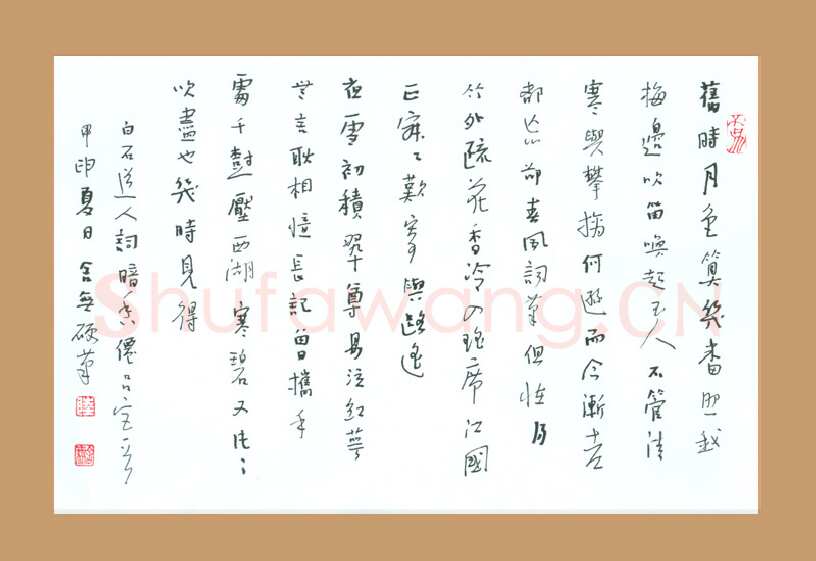 舊時月色算幾番照我
梅邊吹笛喚起玉人不管清
寒與攀摘何遜而今漸老
都忘卻春風詞筆但怪得
竹外疏花香冷入瑤席江國
正寂々歎寄與路遙
夜雪初積翠尊易泣紅萼
無言耿相憶長記曾攜手
處千樹壓西湖寒碧又片々
吹盡也幾時見得
白石道人詞暗香僊呂宮
甲申夏日含無硬筆
Shufawang.CN